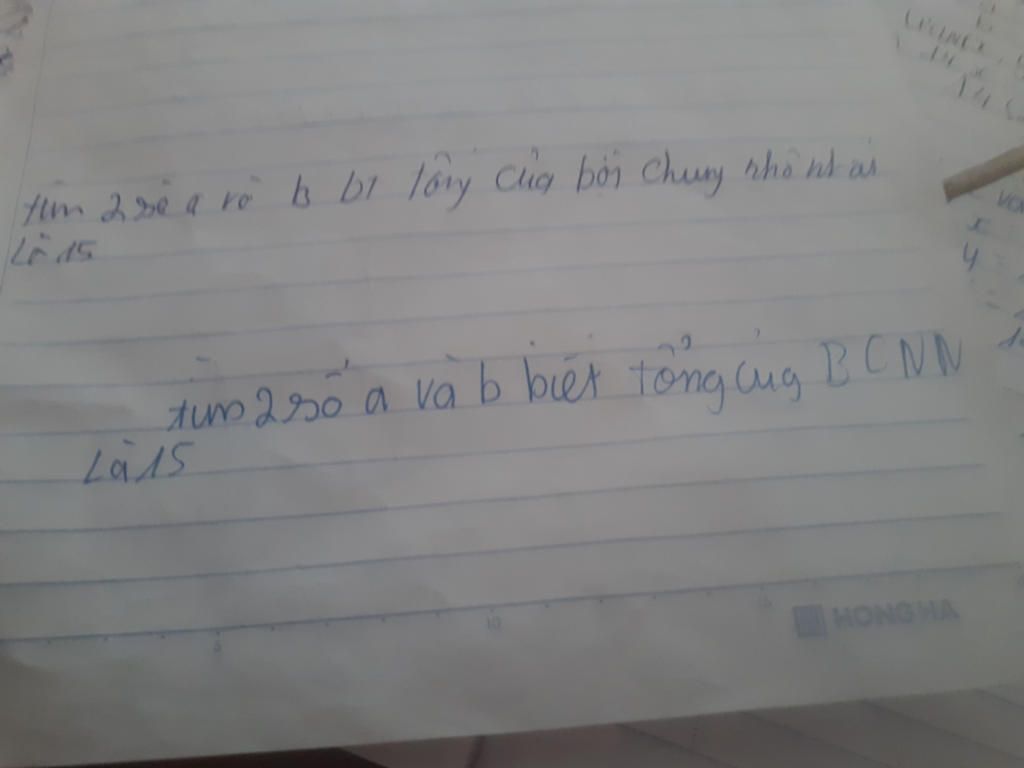 tìm 2 số a và b bt tổng của bội chung nhỏ nhất
là 15
tìm 2 số a và b biết tổng củg BCNN
Là 15
5 10 15
HONG HA
x
y